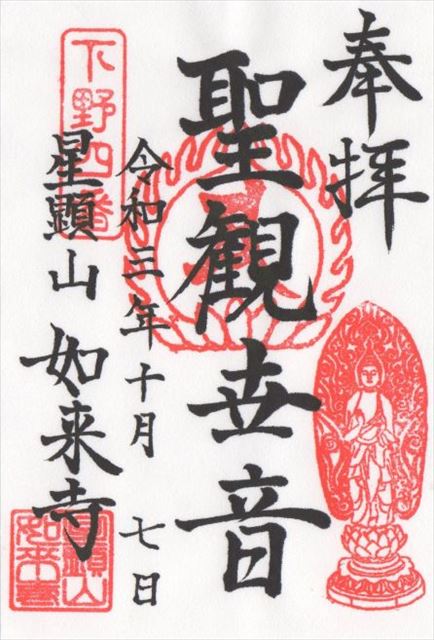 奉拝
聖観世音
令和三年十月七日
下野四番
星顕山如来寺
星顕山
如来寺